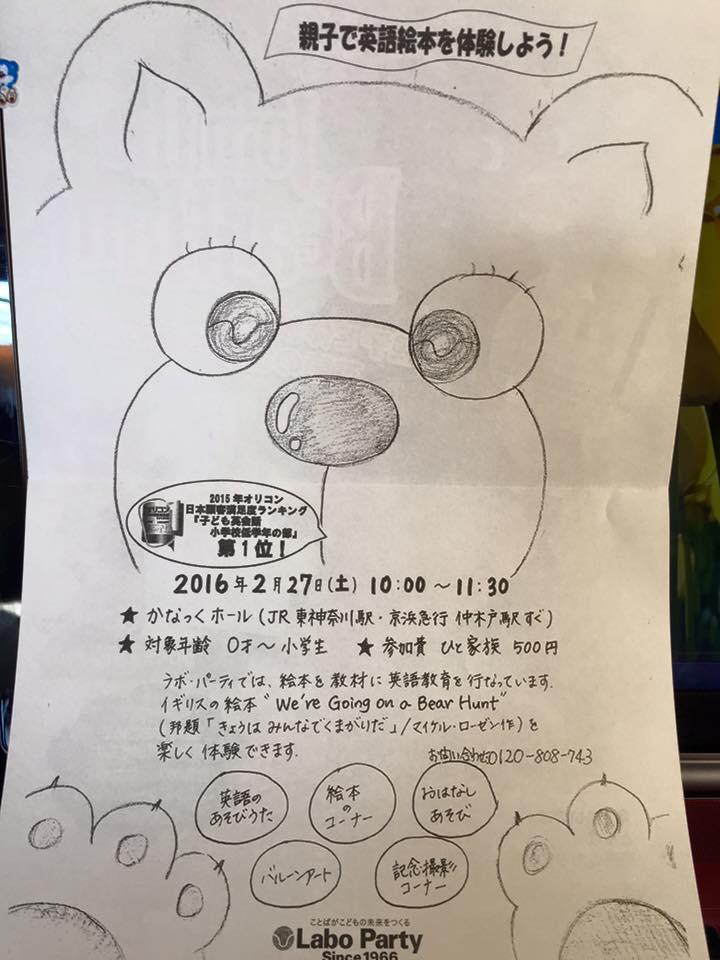 親子で英語絵本を体験しよう！
2015年オリコン
日本顧客満足度ランキング
『子ども英会話
小学校低学年の部』
第1位！
2016年2月27日(土) 10:00～11:30
★ かなっくホール (JR東神奈川駅・京浜急行 仲木戸駅すぐ)
★ 対象年齢 0才～小学生 ★ 参加費 ひと家族 500円
ラボ・パーティでは、絵本を教材に英語教育を行なっています.
イギリスの絵本 "We're Going on a Bear Hunt"
(邦題「きょうはみんなでくまがりだ」/マイケル・ローゼン作)を
楽しく体験できます.
お問い合わせ0120-808-743
英語の
あそびうた
絵本
の
コーナー
おはなし
あそび
バルーンアート
記念撮影
コーナー
ことばがこどもの未来をつくる
Labo Party
Since1966